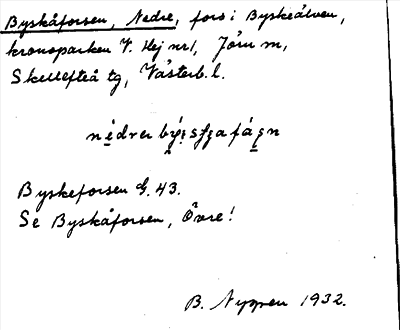 Byskåforsen, Nedre, fors i Byskeälven,
kronoparken V. Hej nr 1, Jörn sn,
Skellefteå tg, Västerb. l.
Byskeforsen G. 43.
Se Byskåforsen, Övre!
B. Nygren 1932.